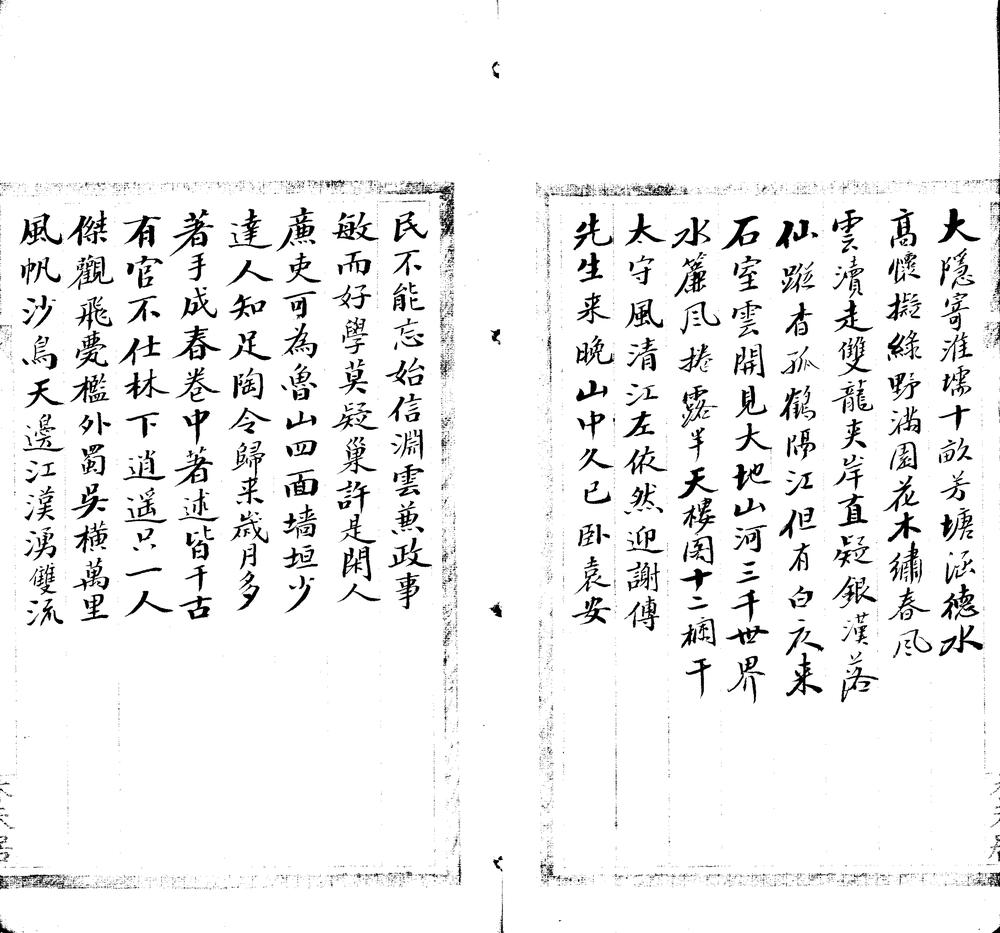 大隱寄淮壖十畝芳塘涵德水
高懷擬綠野滿園花木繡春风
雲瀆走雙龍夾岸直疑銀漢落
仙蹤杳孤鶴隔江但有白衣来
石室雲開見大地山河三千世界
水簾风捲露半天樓阁十二欄干
太守風清江左依然迎謝傅
先生来晚山中久已卧袁安
民不能忘始信淵雲兼政事
敏而好學莫疑巢許是閑人
亷吏可為魯山四面墻垣少
達人知足陶令歸来歳月多
著手成春卷中著述皆千古
有官不仕林下逍遥只一人
傑觀飛甍檻外蜀吳横萬里
風帆沙鳥天邊江漢湧雙流